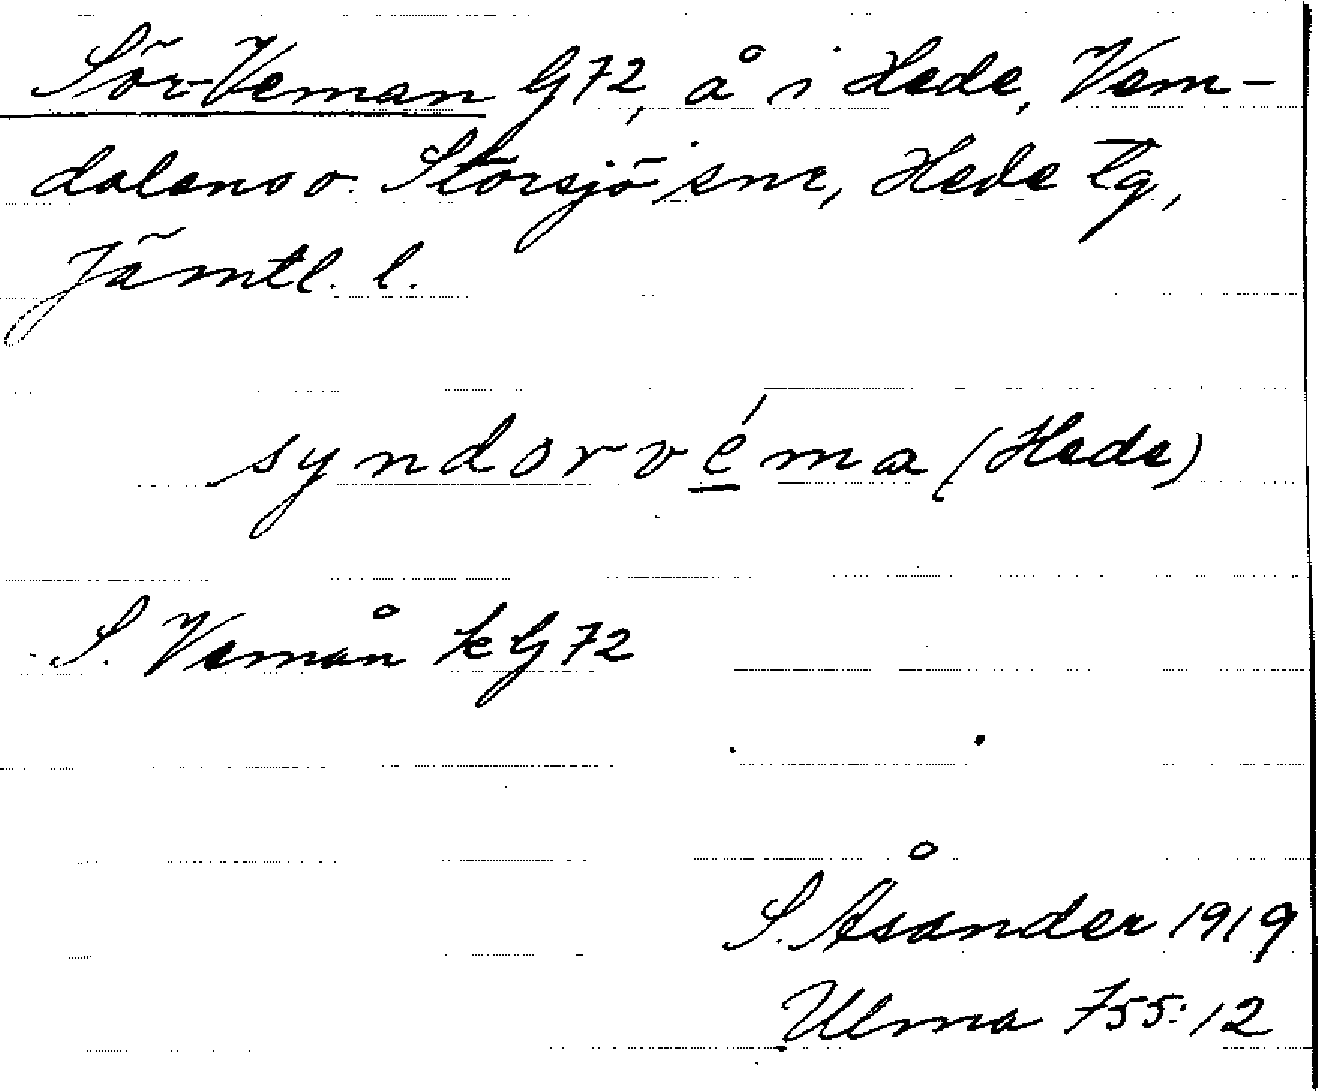 Sör-Veman G72, å i Hede, Vem-
dalens o. Storsjö snr, Hede tg,
Jämtl. l.
syndorvéma (Hede)
S. Vemån k G72
S. Åsander 1919
Ulma 755:12